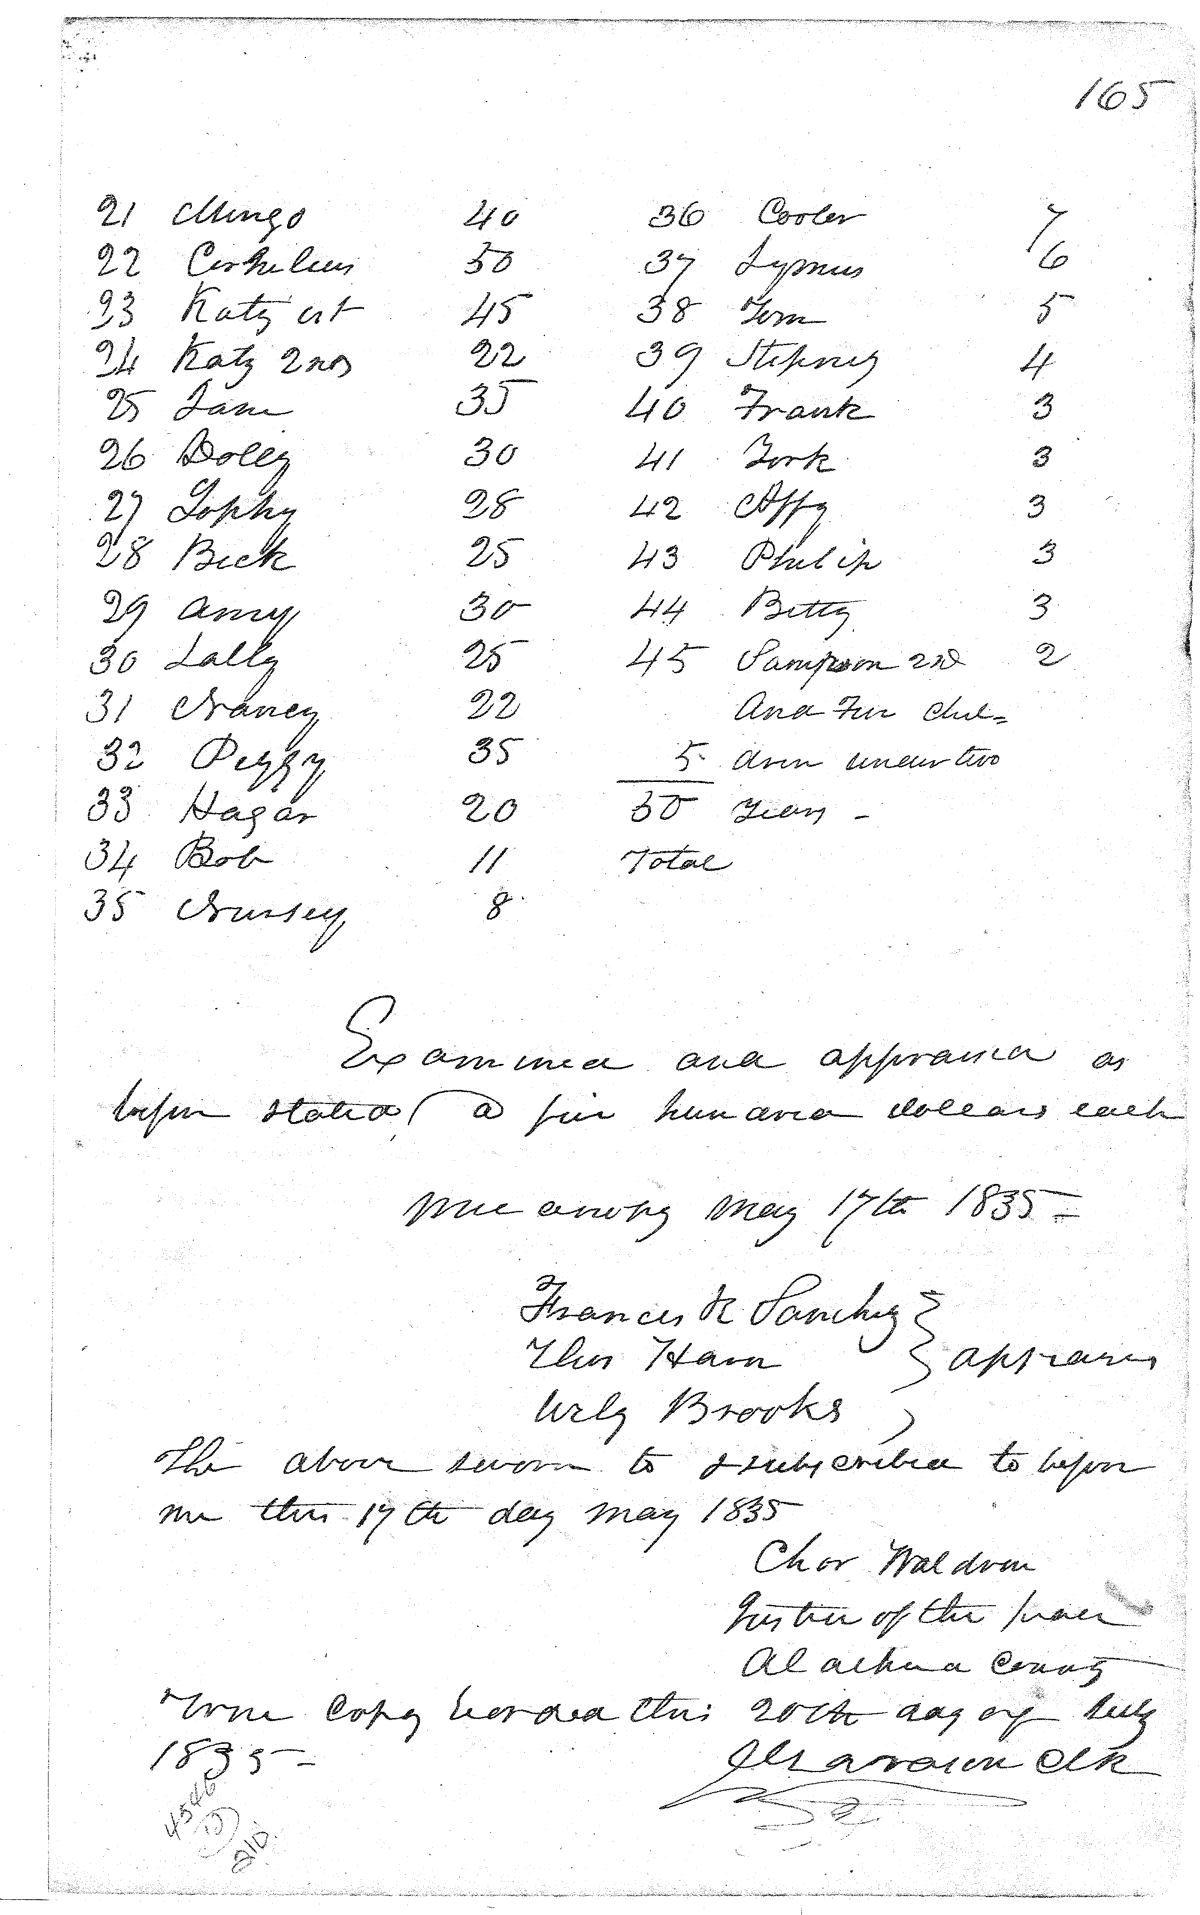 165
21 Mingo 40
22 Cornelius 50
23 Katy 1st 45
24 Katy 2nd 22
25 Jane 35
26 Dolly 30
27 Sophy 28
28 Beck 25
29 Amy 30
30 Sally 25
31 Nancy 22
32 Peggy 35
33 Hagar 20
34 Bob 11
35 Nursey 8
36 Cooler 7
37 Symus 6
38 Tom 5
39 Stepney 4
40 Frank 3
41 York 3
42 Affy 3
43 Philip 3
44 Betty 3
45 Sampson 2nd 2
And Five chil=
5 dren under two
50 years -
Total
Examined and appraised as
before stated @ five hundred dollars each
May 17th 1835
Francis R Sanchez
Thos Harn appraisers
Wely Brooks
The above sworn to & subscribed to before
me this 17th day May 1835
Chas Waldron
Justice of the peace
Alachua County
True Copy Recorded this 20th day of July
1835 -
Clk
210